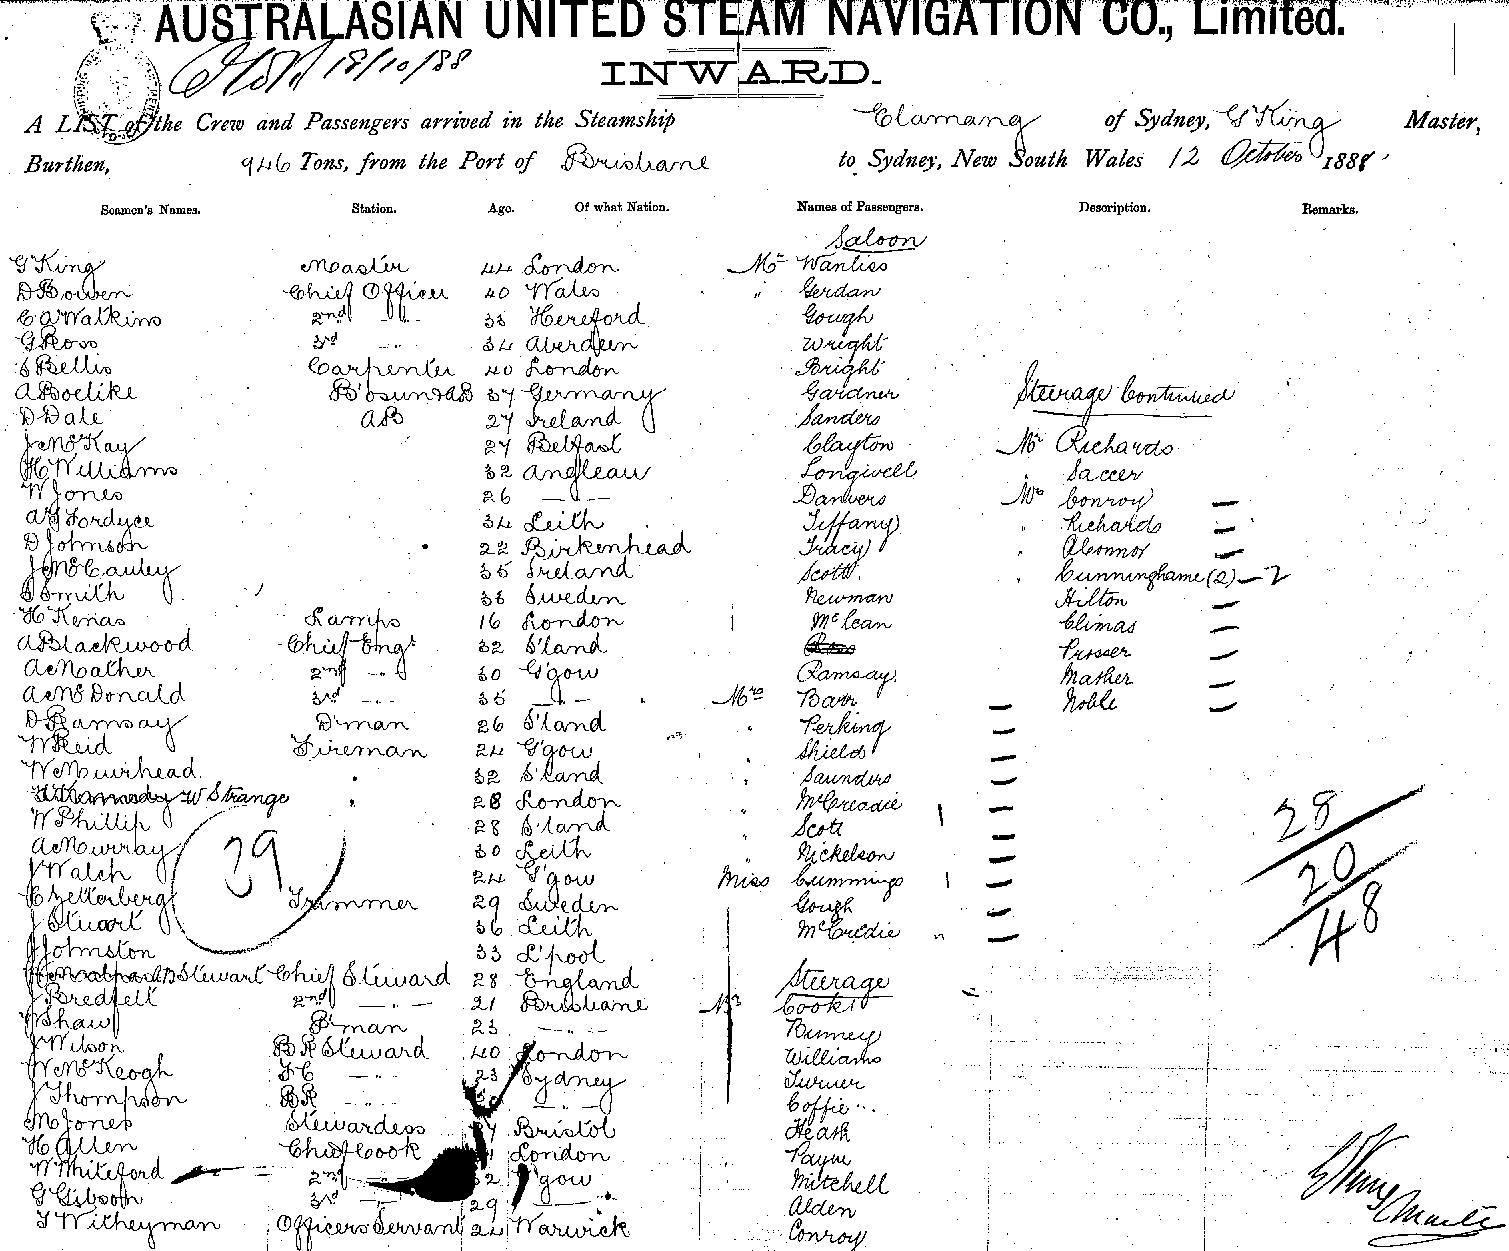 AUSTRALASIAN UNITED STEAM NAVIGATION CO., Limited.
18/10/88
INWARD.
A LIST of the Crew and Passengers arrived in the Steamship Elamang of Sydney, G King Master,
Burthen, 946 Tons, from the Port of Brisbane to Sydney, New South Wales 12 October 1888
Seamen's Names. Station. Age. Of what Nation. Names of Passengers. Description. Remarks.
Saloon
G King Master 44 London Mr Wanliss
D Bowen Chief Officer 40 Wales " Gerdan
C A Watkins 2nd " 33 Hereford Gough
G Ross 3rd " 34 Aberdeen Wright
S Bellis Carpenter 40 London Bright
A Boelike B'osun & AB 37 Germany Gardner Steerage Continued
D Dale AB 27 Ireland Sanders
J McKay 27 Belfast Clayton Mr Richards
H Williams 32 Anglesau Longwell " Saccer
W Jones 26 — " — Danvers Mrs Conroy —
A J Fordyce 34 Leith Tiffany " Richards —
D Johnson 22 Birkenhead Tracy " OConnor —
J McCauley 35 Ireland Scott. " Cunninghame (2) — 2
S Smith 38 Sweden Newman Hilton —
H Kenas Lamps 16 London McLean Climas —
A Blackwood Chief Engr 32 S'land Prosser —
A Mather 2nd " 30 G'gow Ramsay Mather —
A McDonald 3rd " 35 — " — Mrs Barr — Noble —
D Ramsay D'man 26 S'land " Perking —
W Reid Fireman 24 G'gow Shields —
W Muirhead " 32 S'land " Saunders —
W Strange " 28 London " McCreadie —
W Phillip 28 S'land " Scott — 28
A Murray 30 Leith " Nickelson — 20
J Walch 24 G'gow Miss Cummings — 48
C Zetterberg Trimmer 29 Sweden Gough —
J Stuart 36 Leith McCredie " —
J Johnston 33 L'pool
39
B Stewart Chief Steward 28 England Steerage
J Bredfelt 2nd — " — 21 Brisbane Mr Cook
W Shaw P'man 23 — " — Binney
J Wilson BR Steward 40 London Williams
W McKeogh FC — " — 23 Sydney Turner
J Thompson BR — " — 30 — " — Coffie
M Jones Stewardess Bristol Heath
H Allen Chief Cook London Payne
W Whiteford 2nd " 32 G'gow Mitchell
G Gibson 3rd " 29 — " — Alden
T Witheyman Officers Servant 24 Warwick Conroy
G King Master